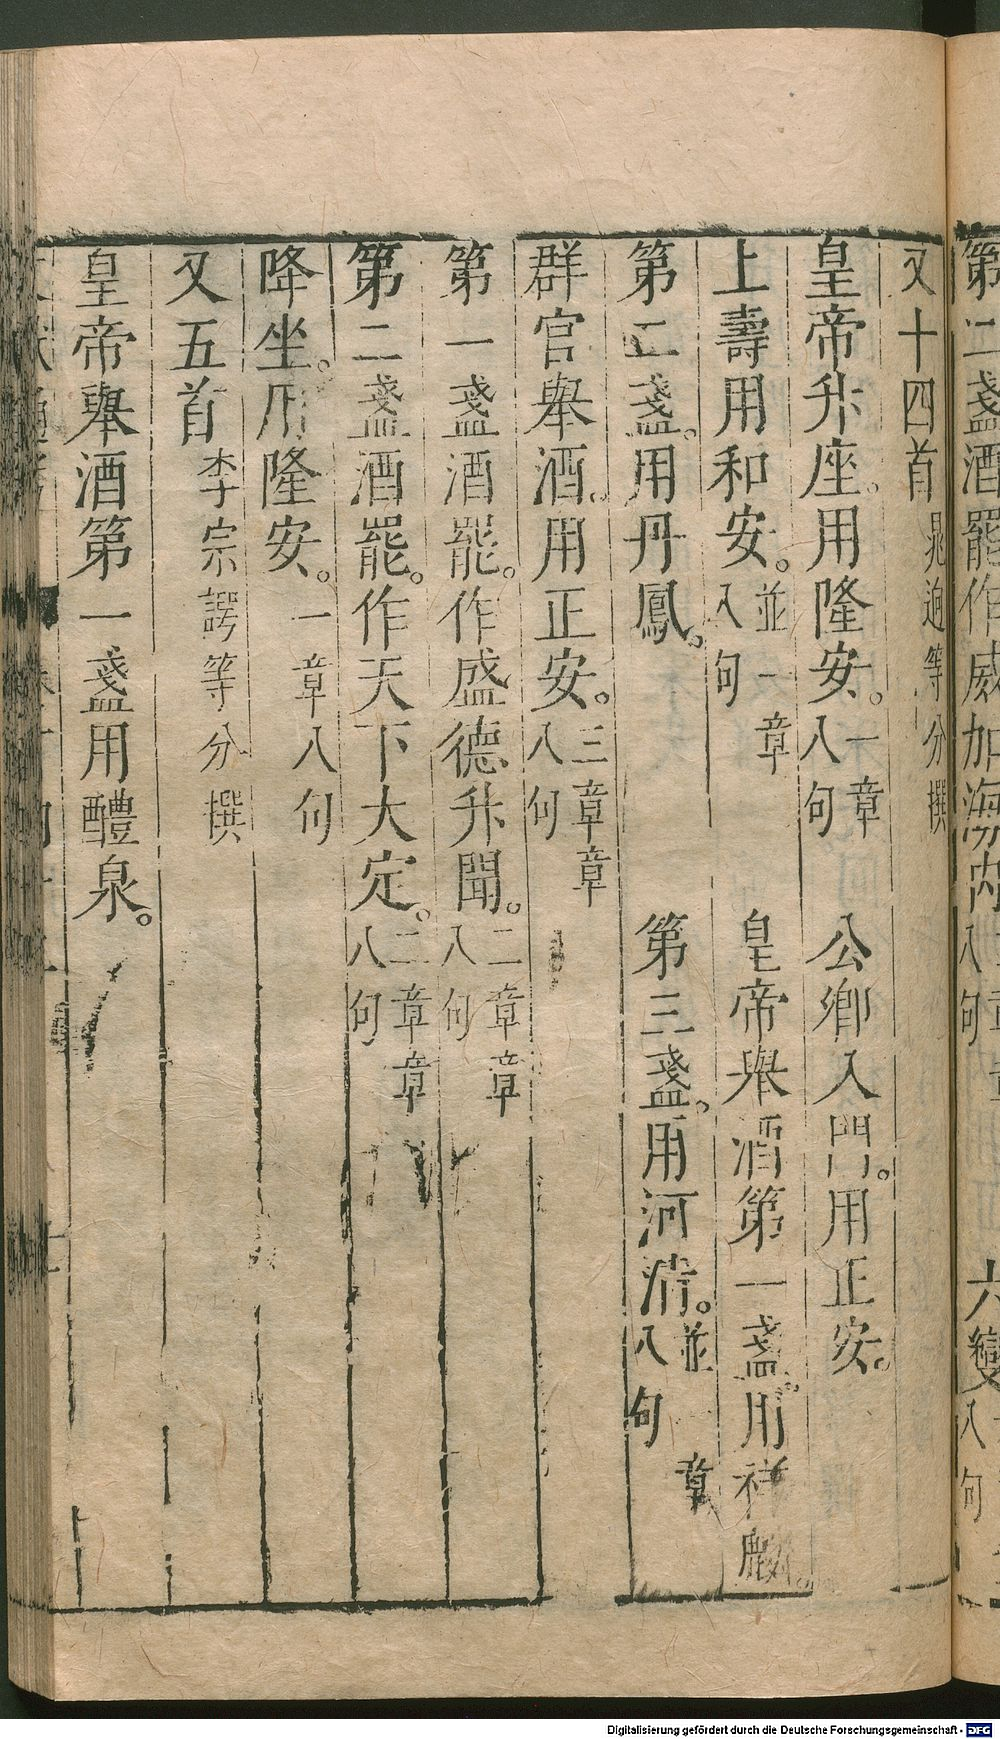 第二盞酒罷作威加海內八句
六變八句
又十四首晁迥等分撰
皇帝升座。用隆安。一章八句 公卿入門。用正安。
上壽用和安。並一章八句 皇帝舉酒第一盞。用祥麟。
第二盞。用丹鳳。 第三盞。用河清。並章八句
群官舉酒。用正安。三章章八句
第一盞酒罷。作盛德升聞。二章章八句
第二盞酒罷。作天下大定。二章章八句
降坐。用隆安。一章八句
又五首李宗諤等分撰
皇帝舉酒第一盞用醴泉。
Digitalisierung gefördert durch die Deutsche Forschungsgemeinschaft - DFG